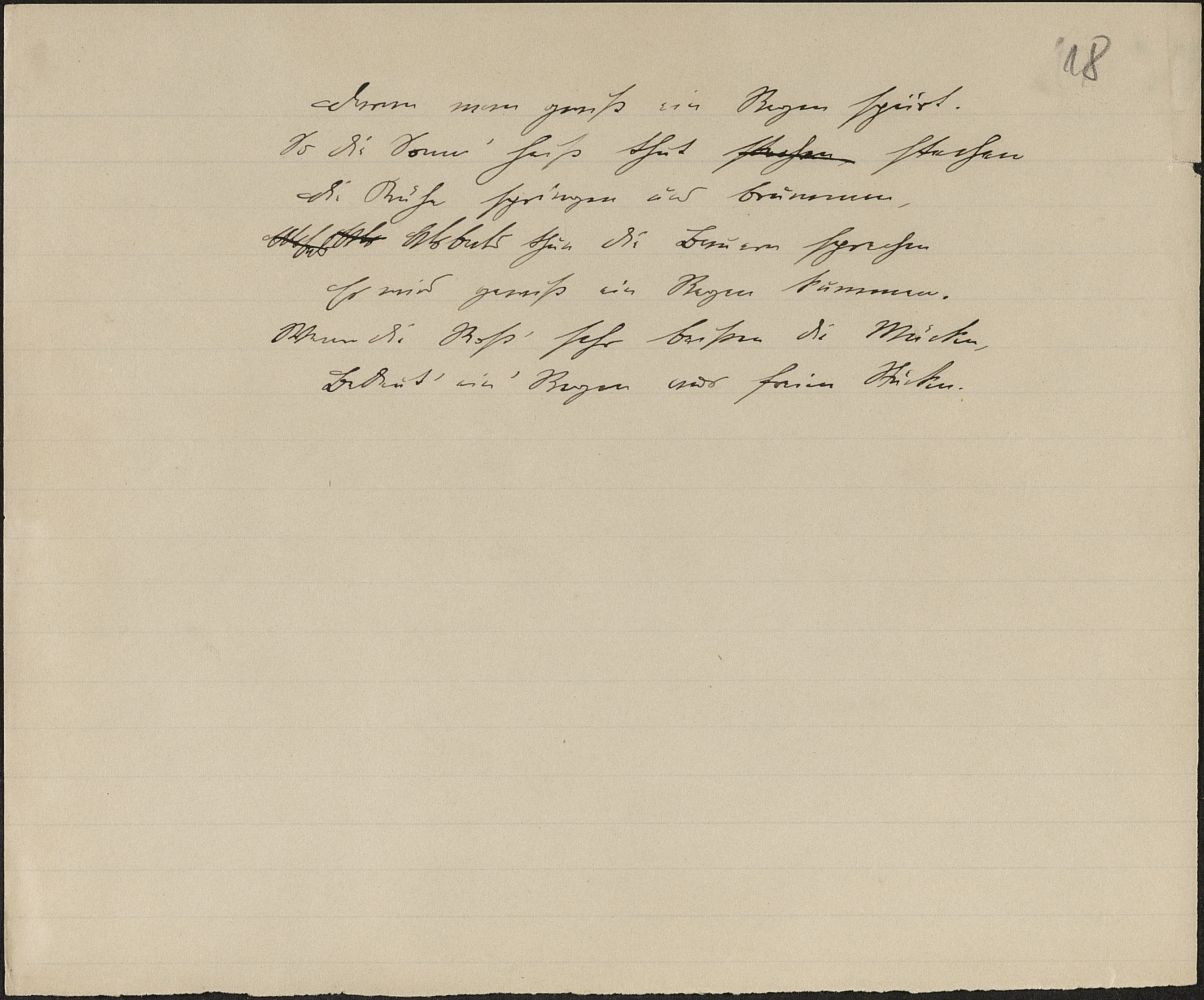 18
daran man gewiß ein Regen spürt.
So die Sonn' heiß thut stechen
die Kühe springen und brummen,
Alsbald thun die Bauern sprechen
Es wird gewiß ein Regen kummen.
Wenn die Roß' sehr beißen die Mücken,
Bedeut' ein' Regen aus freien Stücken.